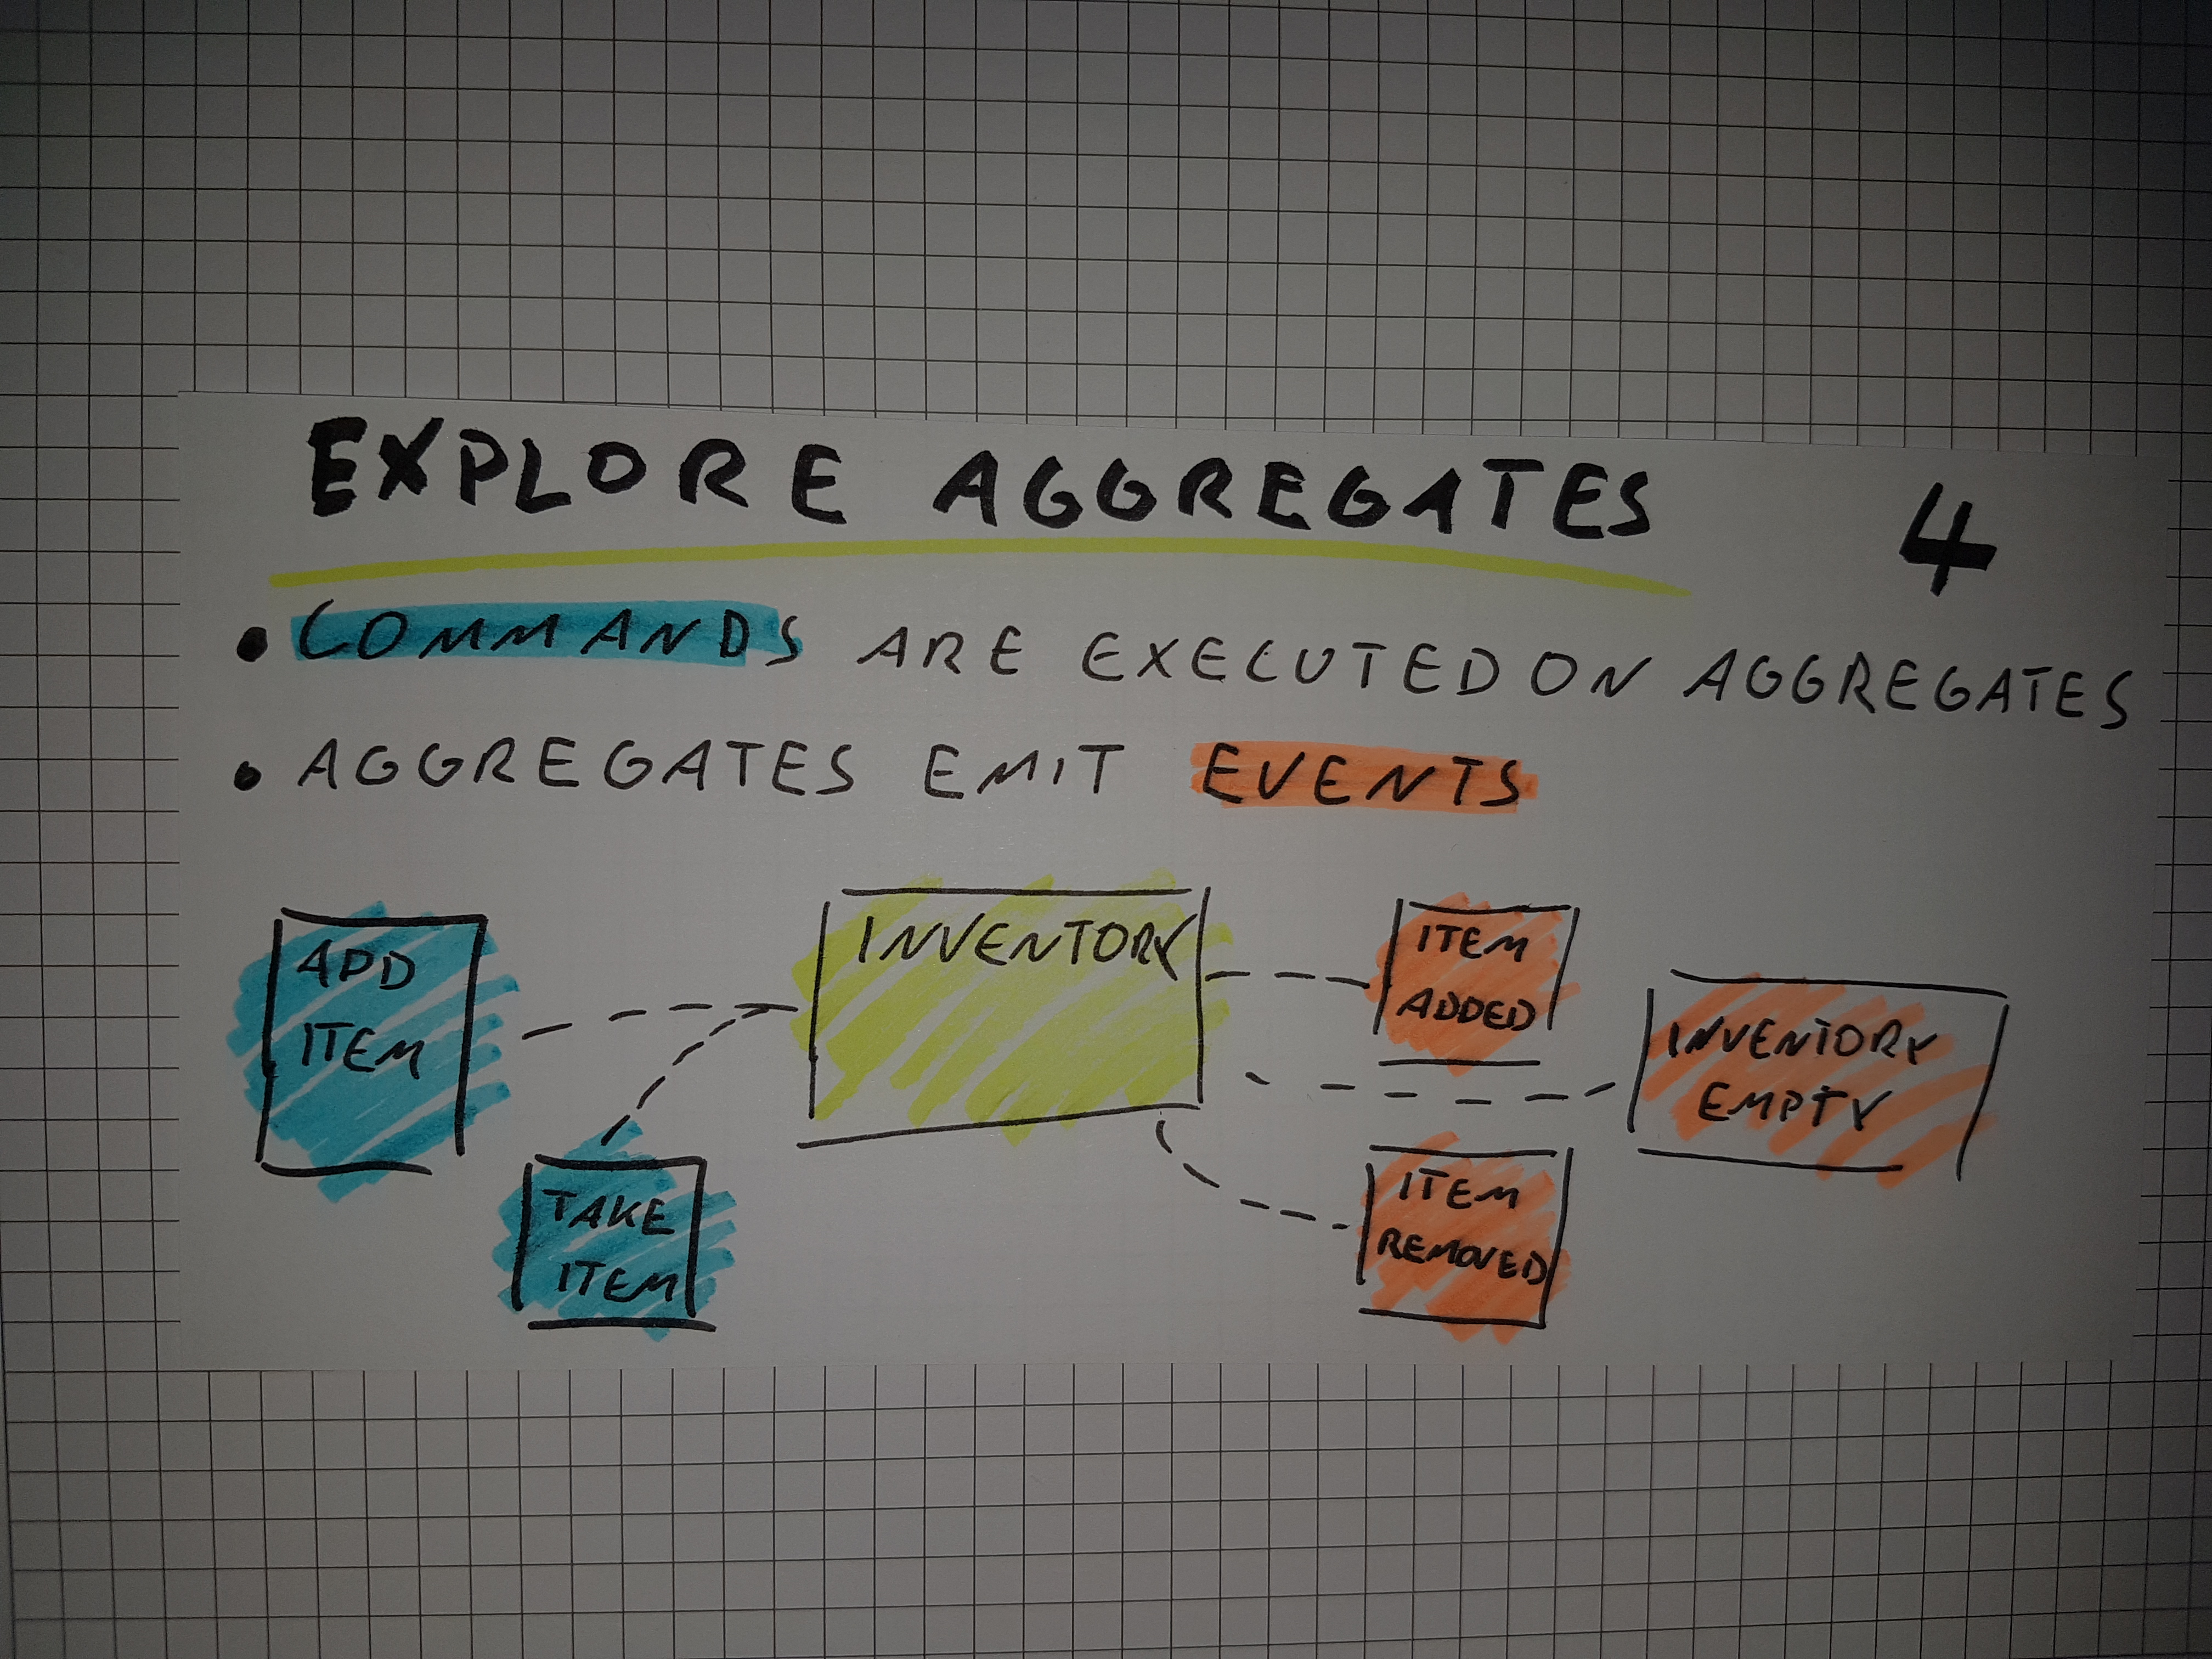 EXPLORE AGGREGATES 4
• COMMANDS ARE EXECUTED ON AGGREGATES
• AGGREGATES EMIT EVENTS
ADD
ITEM
TAKE
ITEM
INVENTORY
ITEM
ADDED
ITEM
REMOVED
INVENTORY
EMPTY